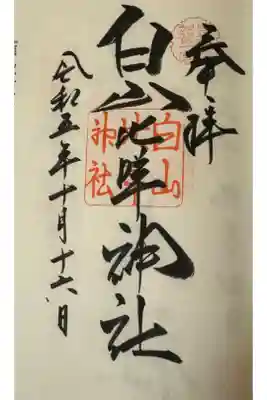 奉拝
白山比咩神社
令和五年十月十六日
白山
比咩
神社